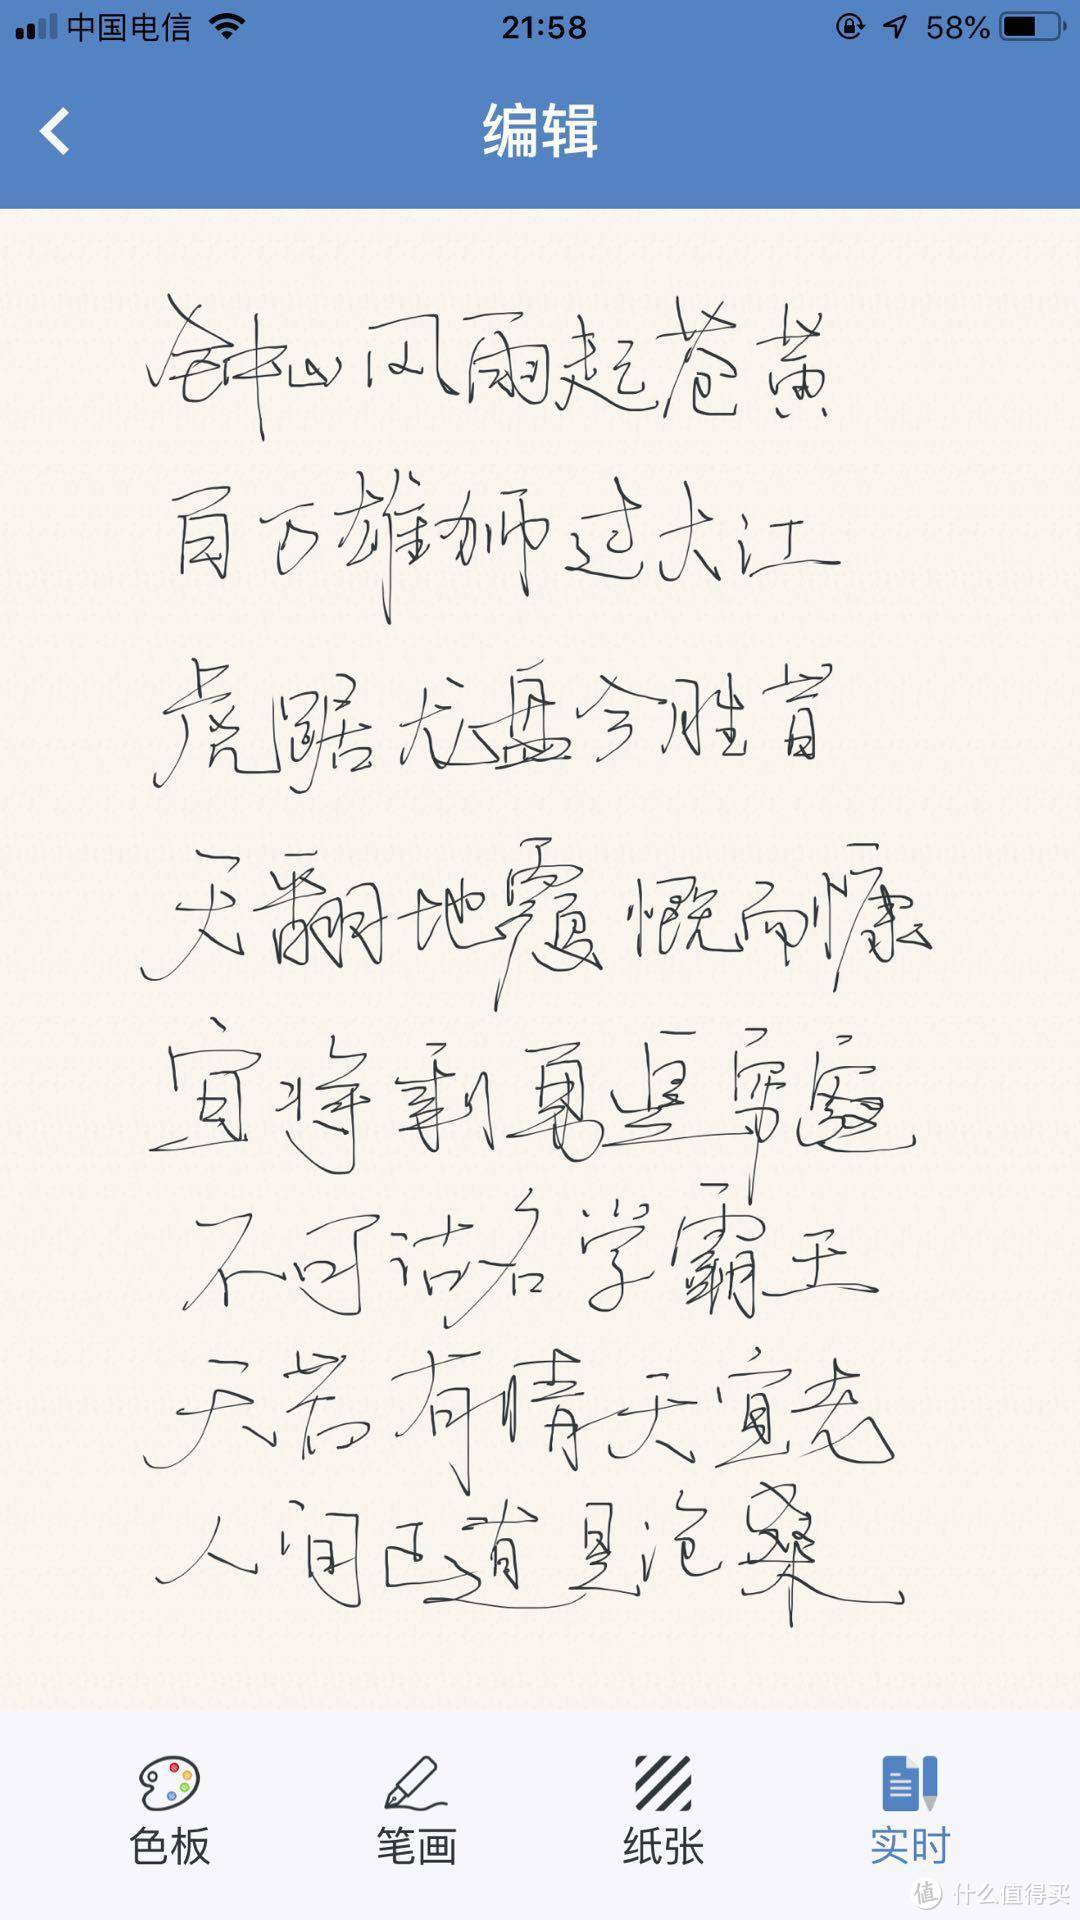 中国电信 21:58 58%
编辑
钟山风雨起苍黄
百万雄师过大江
虎踞龙盘今胜昔
天翻地覆慨而慷
宜将剩勇追穷寇
不可沽名学霸王
天若有情天宜老
人间正道是沧桑
色板 笔画 纸张 实时
值 什么值得买